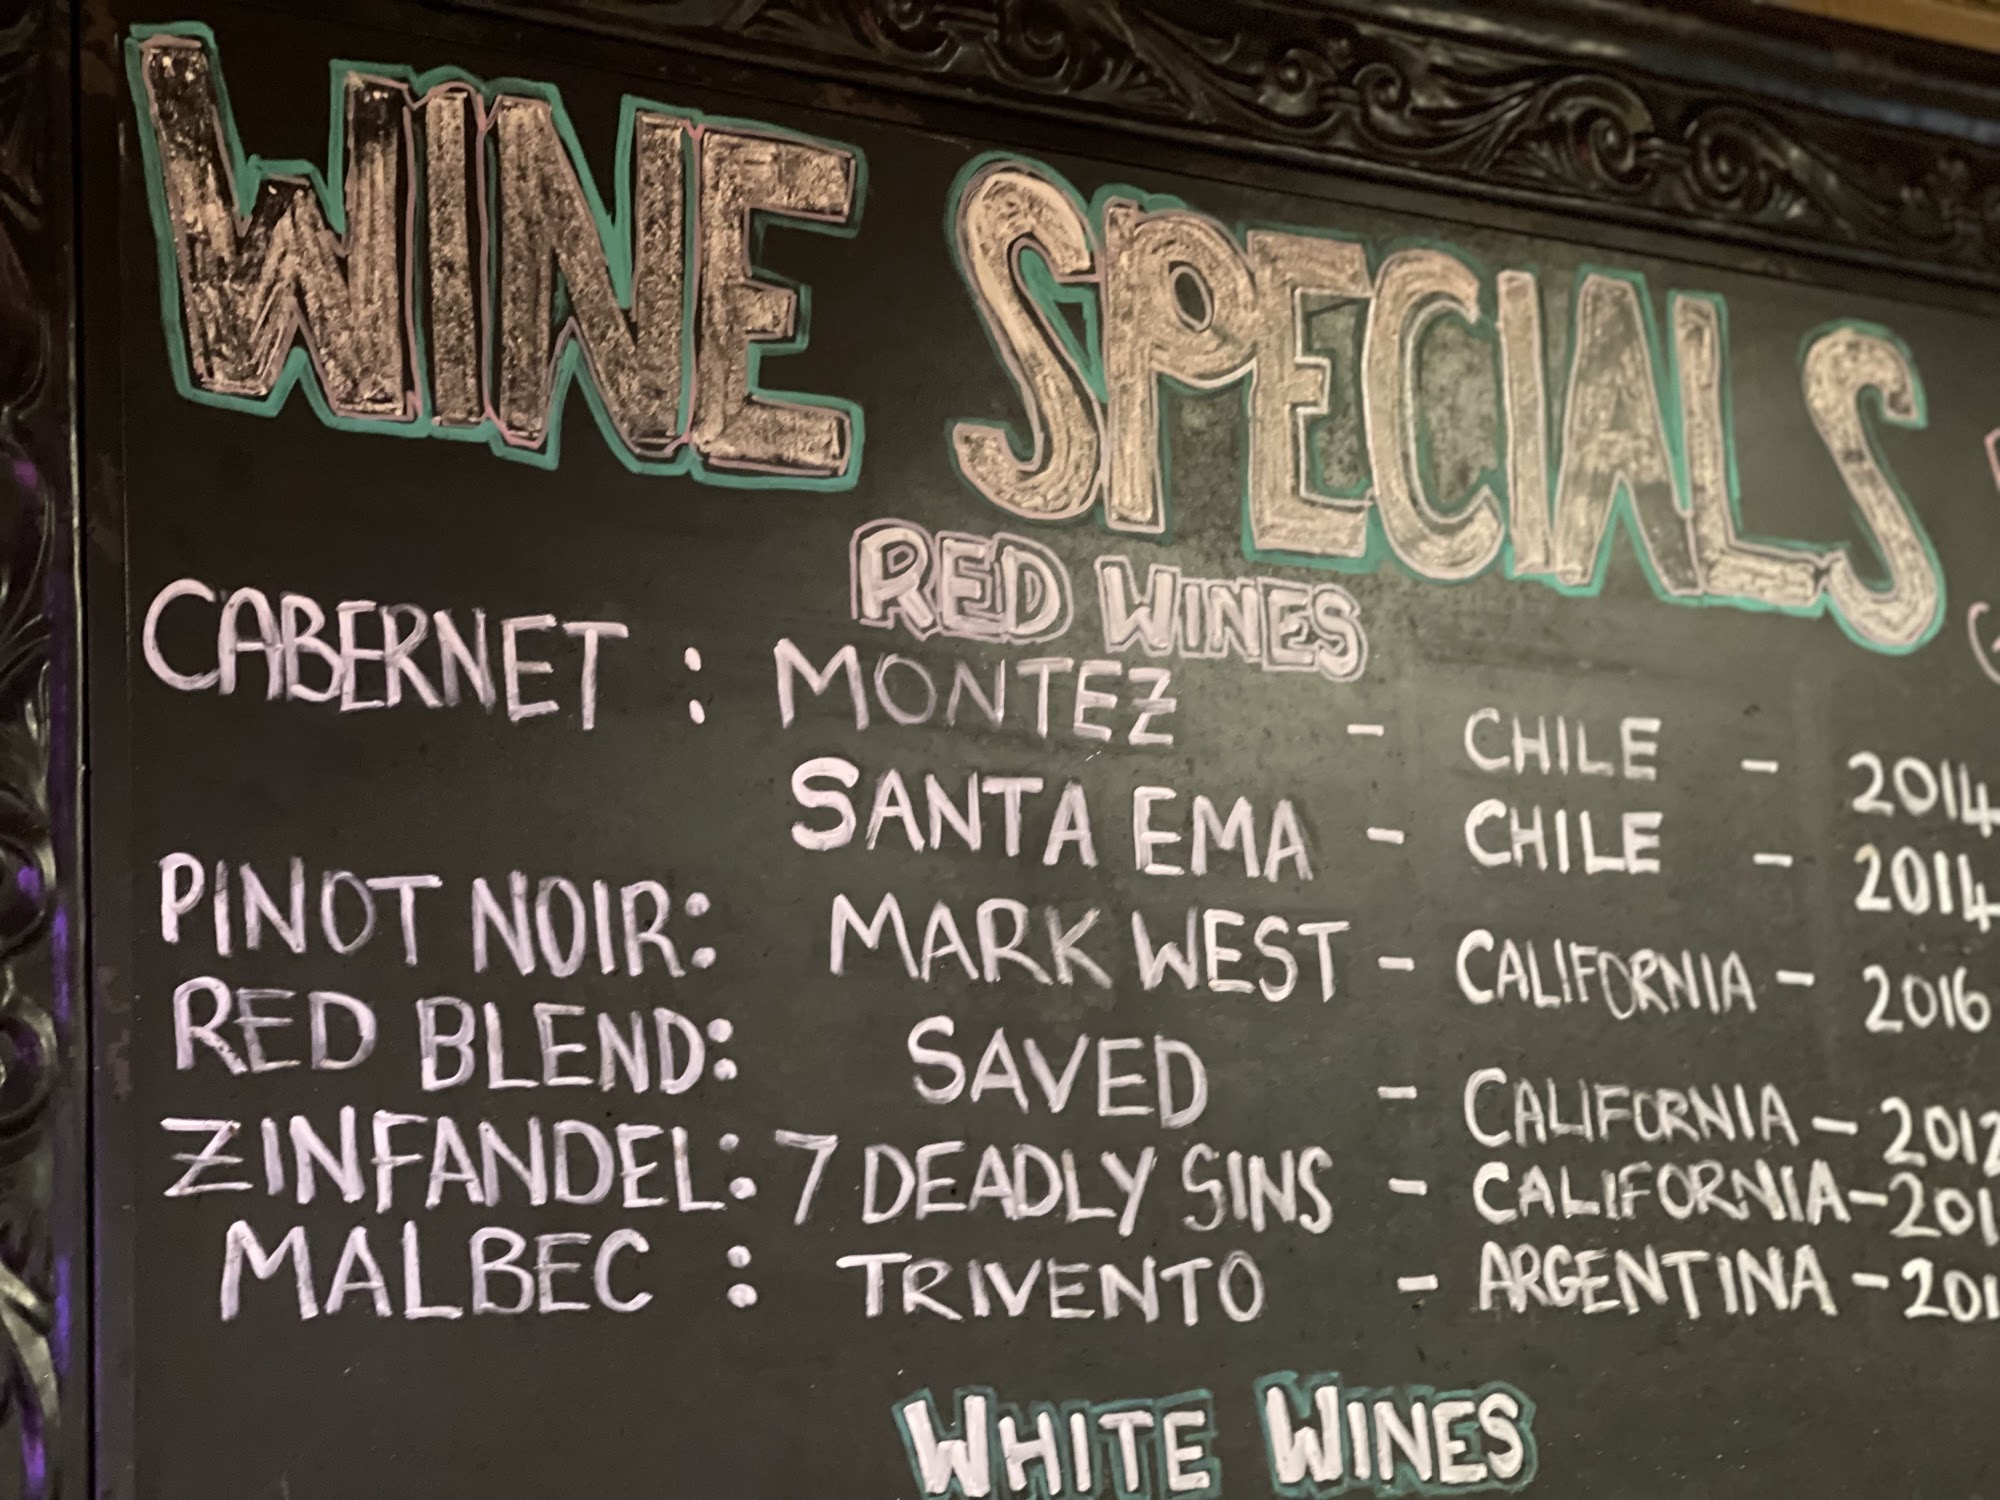 WINE SPECIALS
RED WINES
CABERNET : MONTEZ - CHILE - 2014
SANTA EMA - CHILE - 2014
PINOT NOIR: MARK WEST - CALIFORNIA - 2016
RED BLEND: SAVED - CALIFORNIA - 2012
ZINFANDEL: 7 DEADLY SINS - CALIFORNIA - 201
MALBEC : TRIVENTO - ARGENTINA - 201
WHITE WINES